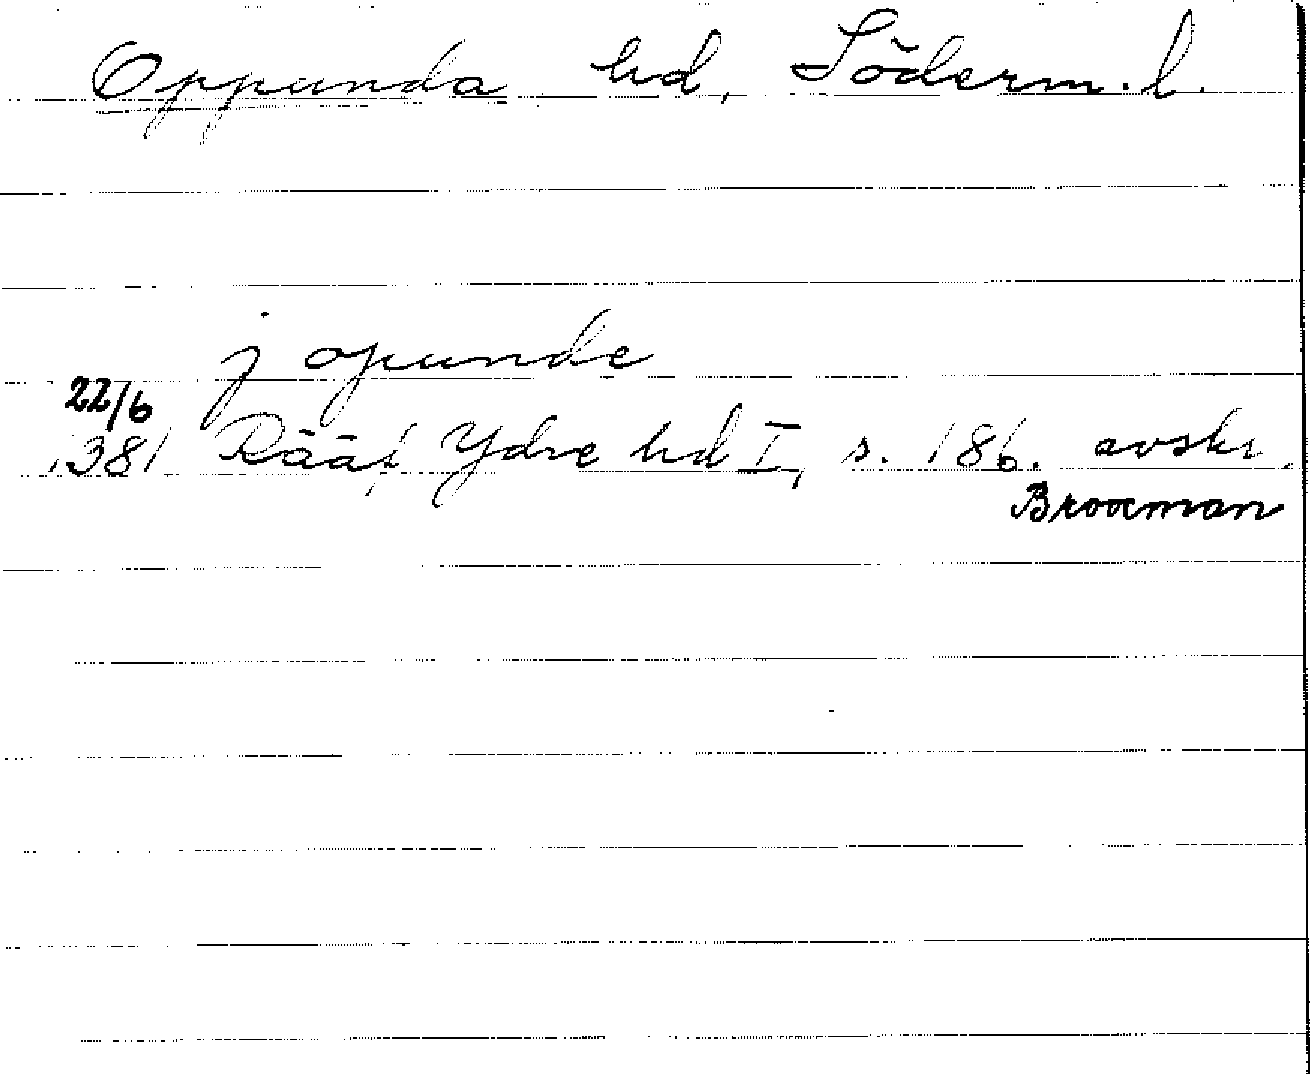 Oppunda hd, Söderm. l.
j opunde
22/6
1381 Rääf Ydre hd I, s. 186. avskr.
Brooxman